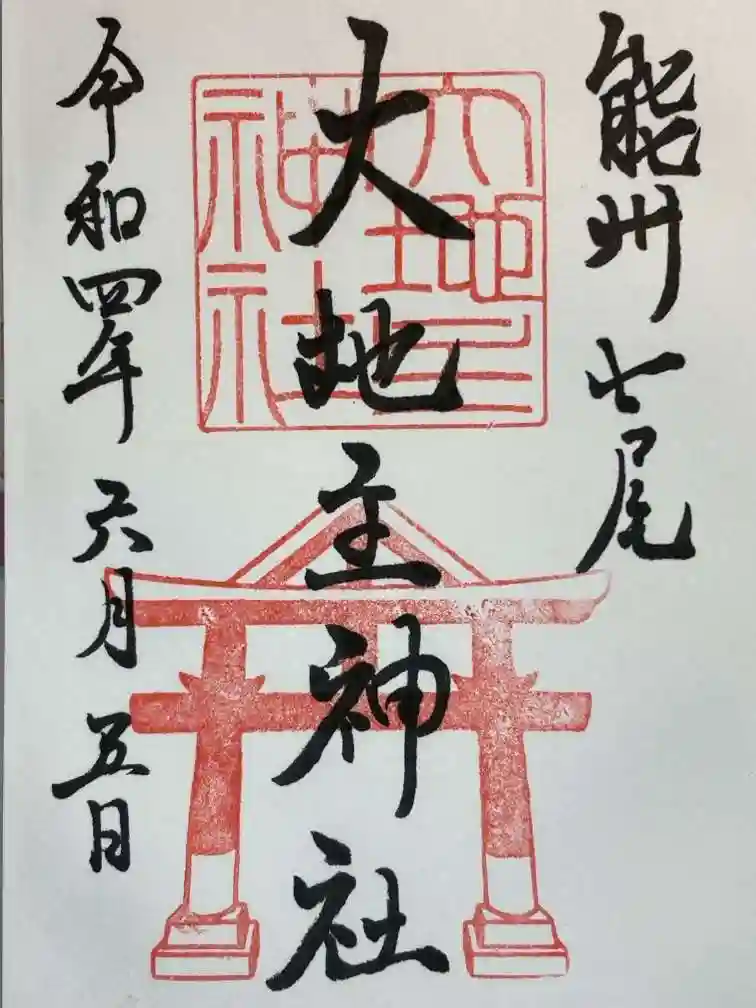 能州七尾
大地主神社
令和四年六月五日
大地主神社